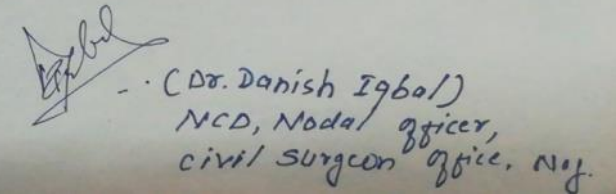 (Dr. Danish Iqbal)
NCD, Nodal officer,
civil surgeon office,